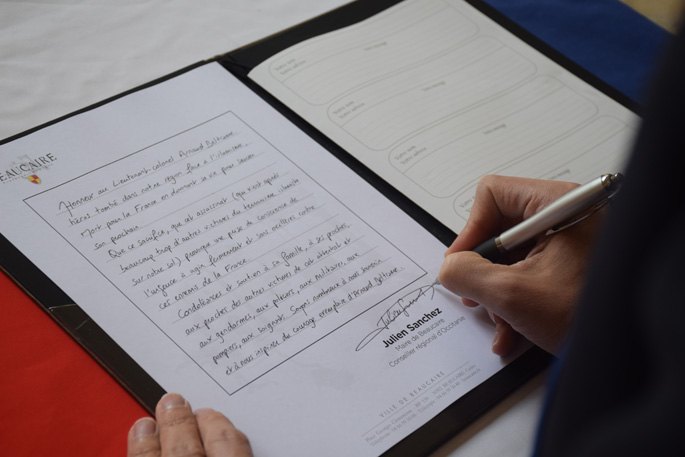 BEAUCAIRE
Honneur au Lieutenant-colonel Arnaud Beltrame,
héros tombé dans notre région face à l'islamisme,
Mort pour la France en donnant sa vie pour sauver
son prochain.
Que ce sacrifice, que cet assassinat (qui s'est ajouté
beaucoup trop d'autres victimes du terrorisme islamiste
sur notre sol) provoque une prise de conscience de
l'urgence à agir fermement et sans meilleures contre
ces ennemis de la France.
Condoléances et soutien à sa famille, à ses proches,
aux proches des autres victimes de cet attentat et
aux gendarmes, aux policiers, aux militaires, aux
pompiers, aux soignants. Soyons nombreux à nous souvenir
et à nous inspirer du courage exemplaire d'Arnaud Beltrame.
Julien Sanchez
Maire de Beaucaire
Conseiller régional d'Occitanie
VILLE DE BEAUCAIRE